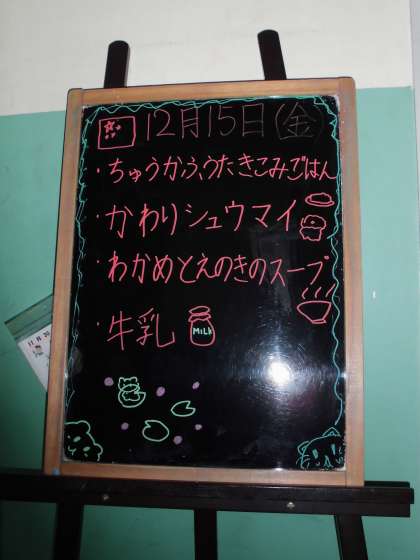 12月15日(金)
・ちゅうかふうたきこみごはん
・かわりシュウマイ
・わかめとえのきのスープ
・牛乳
MILK